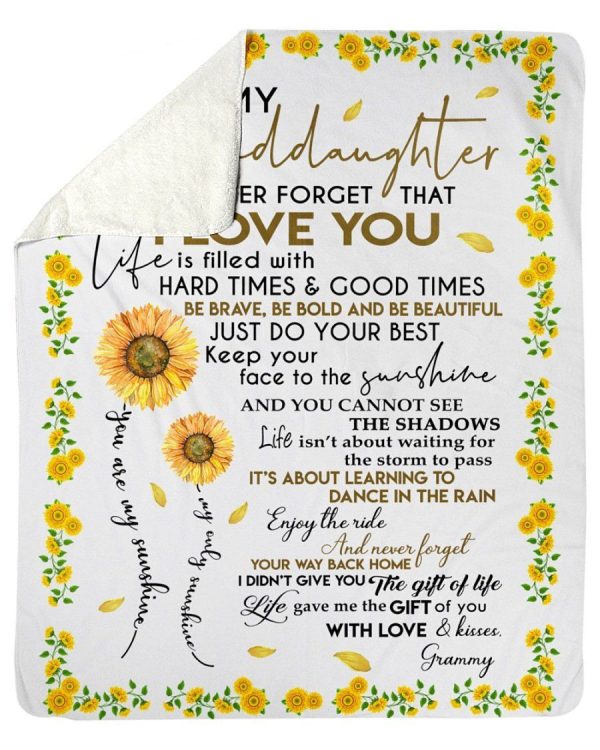 MY
ddaughter
ER FORGET THAT
I LOVE YOU
Life is filled with
HARD TIMES & GOOD TIMES
BE BRAVE, BE BOLD AND BE BEAUTIFUL
JUST DO YOUR BEST
Keep your
face to the sunshine
AND YOU CANNOT SEE
THE SHADOWS
Life isn't about waiting for
the storm to pass
IT'S ABOUT LEARNING TO
DANCE IN THE RAIN
Enjoy the ride
And never forget
YOUR WAY BACK HOME
I DIDN'T GIVE YOU The gift of life
Life gave me the GIFT of you
WITH LOVE & kisses,
Grammy
you are my sunshine
my only sunshine